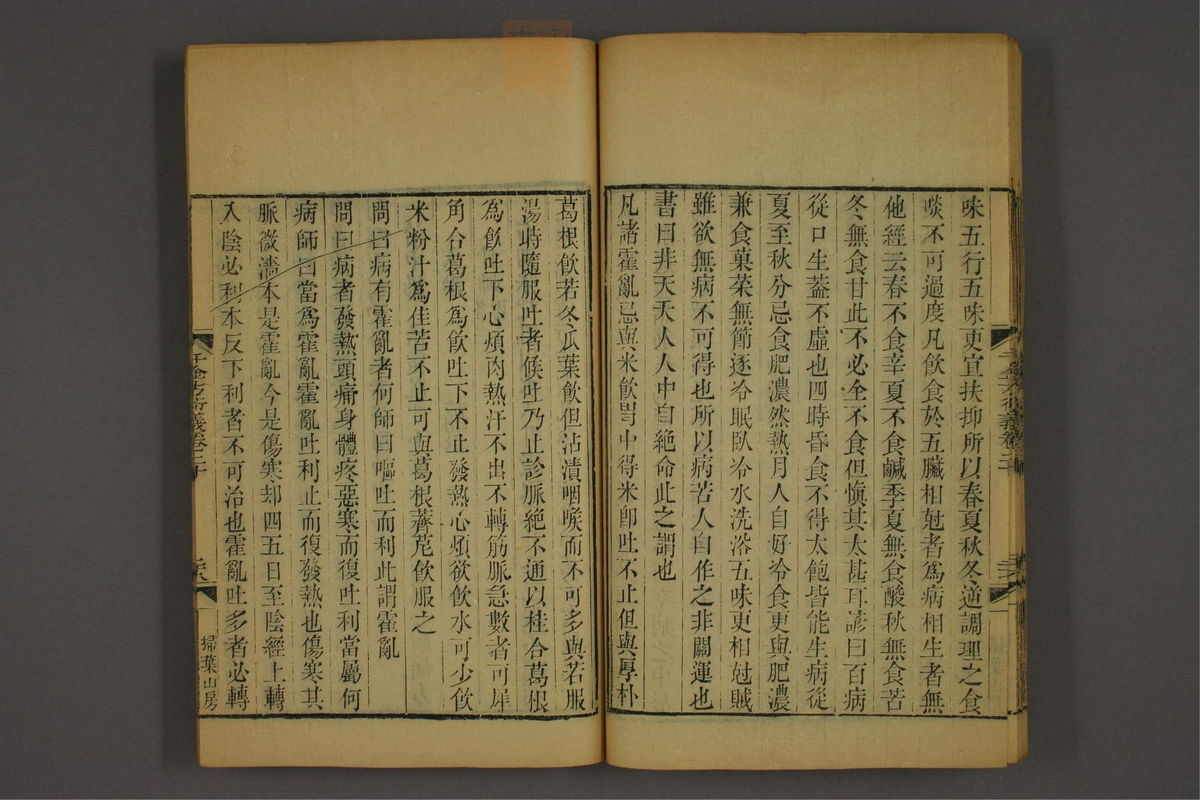 味五行五味更宜扶抑所以春夏秋冬逆調理之食
啖不可過度凡飲食於五臟相尅者為病相生者無
他經云春不食辛夏不食鹹季夏無食酸秋無食苦
冬無食甘此不必全不食但慎其太甚耳諺曰百病
從口生蓋不虛也四時昏食不得太飽皆能生病從
夏至秋分忌食肥濃然熱月人自好冷食更與肥濃
兼食菓菜無節逐冷眠臥冷水洗浴五味更相尅賊
雖欲無病不可得也所以病苦人自作之非關運也
書曰非天夭人人中自絕命此之謂也
凡諸霍亂忌與米飲胃中得米即吐不止但與厚朴
葛根飲若冬瓜葉飲但沾漬咽喉而不可多與若服
湯時隨服吐者候吐乃止診脈絕不通以桂合葛根
為飲吐下心煩肉熱汗不出不轉筋脈急數者可犀
角合葛根為飲吐下不止發熱心煩欲飲水可少飲
米粉汁為佳苦不止可與葛根薺苨飲服之
問曰病有霍亂者何師曰嘔吐而利此謂霍亂
問曰病者發熱頭痛身體疼惡寒而復吐利當屬何
病師曰當為霍亂霍亂吐利止而復發熱也傷寒其
脈微濇本是霍亂今是傷寒却四五日至陰經上轉
入陰必利本反下利者不可治也霍亂吐多者必轉
千金方衍義卷二十
掃葉山房